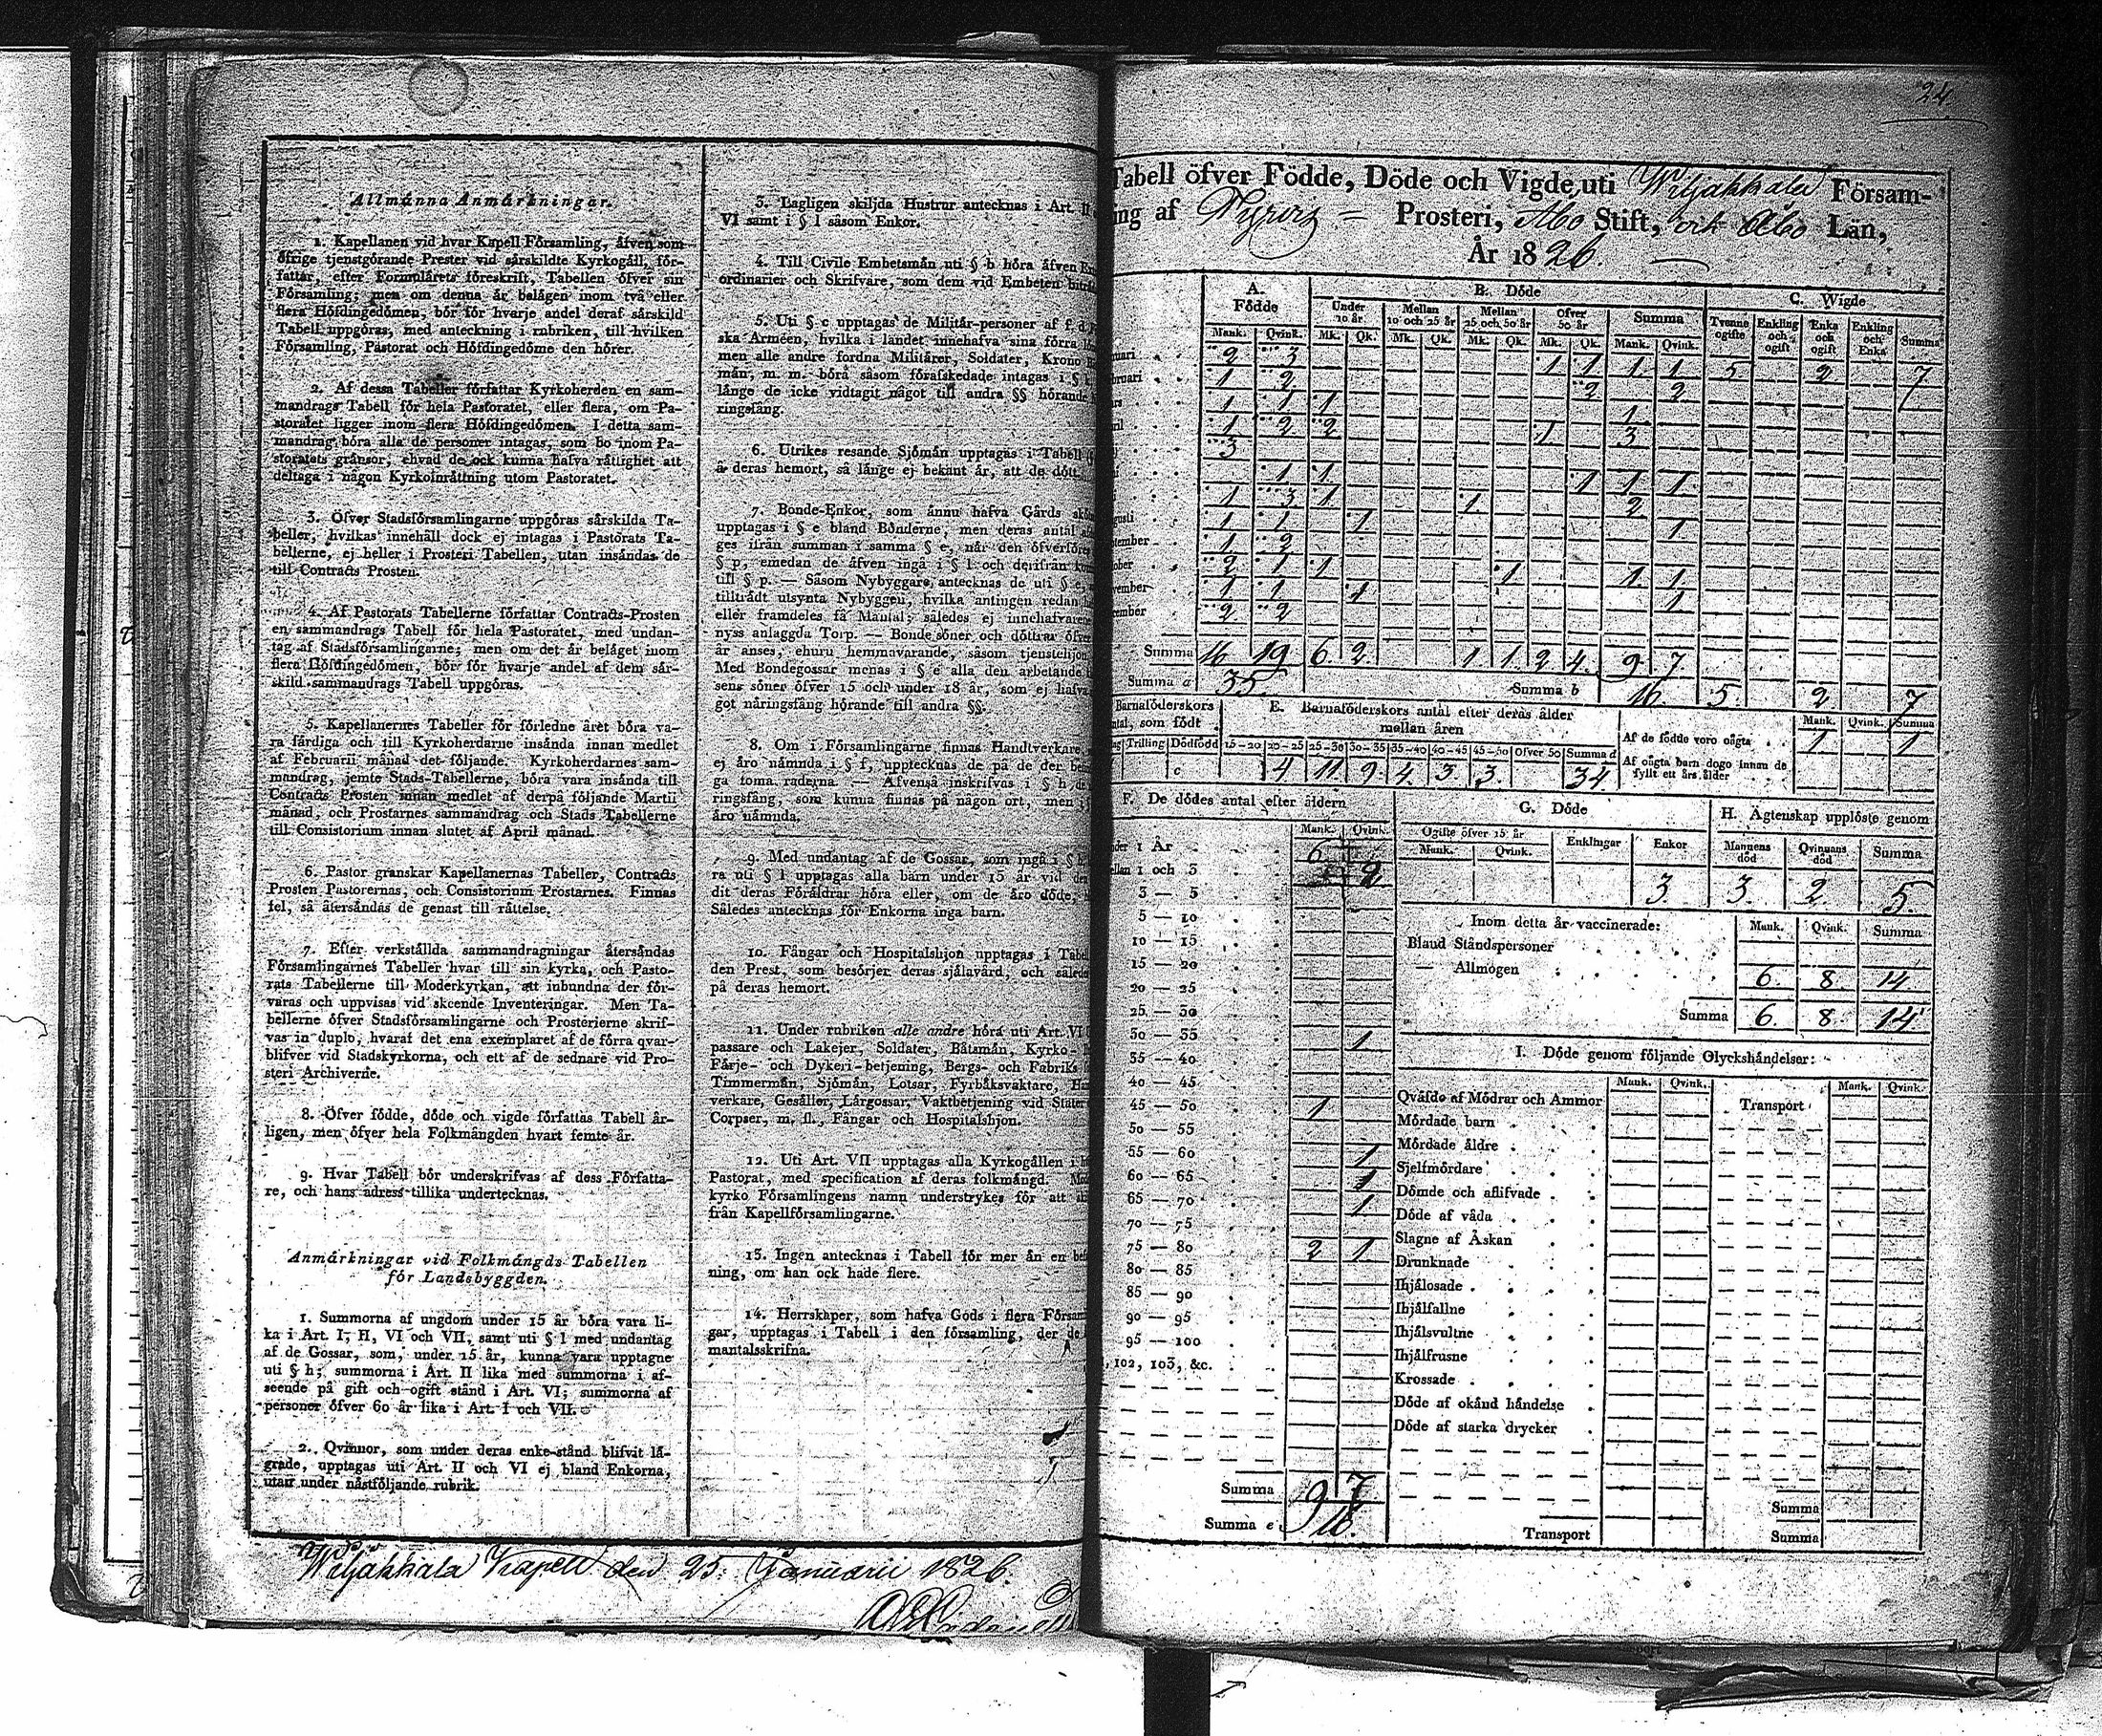 Allmänna Anmärkningar.
1. Kapellanen vid hvar Kapell Församling, äfven som
öfrige tjenstgörande Prester vid särskildte Kyrkogäll, för-
fattar, efter Formulärets föreskrift, Tabellen öfver sin
Församling; men om denna är belägen inom två eller
flera Höfdingedömen, bör för hvarje andel deraf särskild
Tabell uppgöras, med anteckning i rubriken, till hvilken
Församling, Pastorat och Höfdingedöme den hörer.
2. Af dessa Tabeller författar Kyrkoherden en sam-
mandrags Tabell för hela Pastoratet, eller flera, om Pa-
storatet ligger inom flera Höfdingedömen. I detta sam-
mandrag böra alla de personer intagas, som bo inom Pa-
storatets gränsor, ehvad de ock kunna hafva rättighet att
deltaga i någon Kyrkoinrättning utom Pastoratet.
3. Öfver Stadsförsamlingarne uppgöras särskilda Ta-
beller, hvilkas innehåll dock ej intages i Pastorats Ta-
bellerne, ej heller i Prosteri Tabellen, utan insändas de
till Contracts Prosten.
4. Af Pastorats Tabellerne författar Contracts-Prosten
en sammandrags Tabell för hela Pastoratet, med undan-
tag af Stadsförsamlingarne; men om det är beläget inom
flera Höfdingedömen, bör för hvarje andel af dem sär-
skild sammandrags Tabell uppgöras.
5. Kapellanernes Tabeller för förledne året böra va-
ra färdiga och till Kyrkoherdarne insända innan medlet
af Februarii månad det följande. Kyrkoherdarnes sam-
mandrag, jemte Stads-Tabellerne, böra vara insända till
Contracts Prosten innan medlet af derpå följande Martii
månad, och Prostarnes sammandrag och Stads Tabellerne
till Consistorium innan slutet af April månad.
6. Pastor granskar Kapellanernas Tabeller, Contracts
Prosten Pastorernas, och Consistorium Prostarnes. Finnas
fel, så återsändas de genast till rättelse.
7. Efter verkställda sammandragningar återsändas
Församlingarnes Tabeller hvar till sin kyrka, och Pasto-
rats Tabellerne till Moderkyrkan, att inbundna der för-
varas och uppvisas vid skeende Inventeringar. Men Ta-
bellerne öfver Stadsförsamlingarne och Prosterierne skrif-
vas in duplo, hvaraf det ena exemplaret af de förra qvar-
blifver vid Stadskyrkorna, och ett af de sednare vid Pro-
steri Archiverne.
8. Öfver födde, döde och vigde författas Tabell år-
ligen, men öfver hela Folkmängden hvart femte år.
9. Hvar Tabell bör underskrifvas af dess Författa-
re, och hans adress tillika undertecknas.
Anmärkningar vid Folkmängds Tabellen
för Landsbyggden.
1. Summorna af ungdom under 15 år böra vara li-
ka i Art. I, II, VI och VII, samt uti § l med undantag
af de Gossar, som, under 15 år, kunna vara upptagne
uti § h; summorna i Art. II lika med summorna i af-
seende på gift och ogift stånd i Art. VI; summorna af
personer öfver 60 år lika i Art. I och VII.
2. Qvinnor, som under deras enke-stånd blifvit lä-
grade, upptagas uti Art. II och VI ej bland Enkorna,
utan under nästföljande rubrik.
3. Lagligen skiljda Hustrur antecknas i Art. II
VI samt i § l såsom Enkor.
4. Till Civile Embetsmän uti § b höra äfven
ordinarier och Skrifvare, som dem vid Embeten
5. Uti § c upptagas de Militär-personer af f. d.
ska Arméen, hvilka i landet innehafva sina förra
men alle andre fordna Militärer, Soldater, Krono
män, m. m. böra såsom förafskedade intagas i §
länge de icke vidtagit något till andra §§ hörande
ringsfång.
6. Utrikes resande Sjömän upptagas i Tabell
å deras hemort, så länge ej bekant är, att de dött.
7. Bonde-Enkor, som ännu hafva Gårds
upptagas i § e bland Bönderne, men deras antal
ges ifrån summan i samma § e, när den öfverföres
§ p, emedan de äfven ingå i § l och derifrån
till § p. — Såsom Nybyggare antecknas de uti § e,
tillträdt utsynta Nybyggen, hvilka antingen redan
eller framdeles få Mantal; således ej innehafvaren
nyss anlaggda Torp. — Bonde söner och döttrar öfver
år anses, ehuru hemmavarande, såsom tjenstehjon.
Med Bondegossar menas i § e alla den arbetande
sens söner öfver 15 och under 18 år, som ej hafva
got näringsfång hörande till andra §§.
8. Om i Församlingarne finnas Handtverkare,
ej äro nämnda i § f, upptecknas de på de der
ga toma raderna. — Äfvenså inskrifvas i § h
ringsfång, som kunna finnas på någon ort, men
äro nämnda.
9. Med undantag af de Gossar, som ingå i § h
ra uti § l upptagas alla barn under 15 år vid
dit deras Föräldrar höra eller, om de äro döde,
Således antecknas för Enkorna inga barn.
10. Fångar och Hospitalshjon upptagas i
den Prest, som besörjer deras själavård, och
på deras hemort.
11. Under rubriken alle andre höra uti Art. VI
passare och Lakejer, Soldater, Båtsmän, Kyrko-
Färje- och Dykeri-betjening, Bergs- och Fabriks
Timmermän, Sjömän, Lotsar, Fyrbåksvaktare,
verkare, Gesäller, Lärgossar, Vaktbetjening vid Stater
Corpser, m. fl., Fångar och Hospitalshjon.
12. Uti Art. VII upptagas alla Kyrkogällen i
Pastorat, med specification af deras folkmängd.
kyrko Församlingens namn understrykes för att
från Kapellförsamlingarne.
13. Ingen antecknas i Tabell för mer än en
ning, om han ock hade flere.
14. Herrskaper, som hafva Gods i flera
gar, upptagas i Tabell i den församling, der de
mantalsskrifna.
Wiljakkala Kapell den 25. Januarii 1826.
24
Tabell öfver Födde, Döde och Vigde uti Wiljakkala Försam-
ing af Tyrvis Prosteri, Åbo Stift, och Åbo Län,
År 1826.
A. Födde B. Döde C. Wigde
Under 10 år Mellan 10 och 25 år Mellan 25 och 50 år Öfver 50 år Summa Tvenne ogifte Enkling och ogift Enka och ogift Enkling och Enka Summa
Mank. Qvink. Mk. Qk. Mk. Qk. Mk. Qk. Mk. Qk. Mank. Qvink.
uari 2 3 1 1 1 1 5 2 7
bruari 1 2 2 2
ars 1 1 1 1
ril 1 2 2 1 3
3
1 1 1 1 1
1 3 1 1 2
gusti 1 1 1 1
ptember 1 2
tober 2 1 1 1 1 1
vember 1 1 1 1
cember 2 2
Summa 16 19 6 2 1 1 2 4 9 7
Summa a 35. Summa b 16. 5 2 7
Barnaföderskors
antal, som födt
Trilling Dödfödd
c
E. Barnaföderskors antal efter deras ålder
mellan åren
15—20 20—25 25—30 30—35 35—40 40—45 45—50 Öfver 50 Summa d
4 11 9 4 3 3 34
Mank. Qvink. Summa
Af de födde voro oägta 1 1
Af oägta barn dogo innan de
fyllt ett års ålder
F. De dödes antal efter åldern
Mank. Qvink.
nder 1 År 6
ellan 1 och 3 2
3 — 5
5 — 10
10 — 15
15 — 20
20 — 25
25 — 30
30 — 35 1
35 — 40
40 — 45
45 — 50 1
50 — 55
55 — 60 1
60 — 65 1
65 — 70 1
70 — 75
75 — 80 2 1
80 — 85
85 — 90
90 — 95
95 — 100
102, 103, &c.
Summa 9 7
Summa e 16.
G. Döde
Ogifte öfver 15 år Enklingar Enkor
Mank. Qvink.
3
H. Ägtenskap upplöste genom
Mannens död Qvinnans död Summa
3. 2. 5.
Inom detta år vaccinerade: Mank. Qvink. Summa
Bland Ståndspersoner
— Allmogen 6. 8. 14
Summa 6. 8. 14
I. Döde genom följande Olyckshändelser:
Mank. Qvink. Mank. Qvink.
Qväfde af Mödrar och Ammor Transport
Mördade barn
Mördade äldre
Sjelfmördare
Dömde och aflifvade
Döde af våda
Slagne af Åskan
Drunknade
Ihjälosade
Ihjälfallne
Ihjälsvultne
Ihjälfrusne
Krossade
Döde af okänd händelse
Döde af starka drycker
Summa
Transport Summa